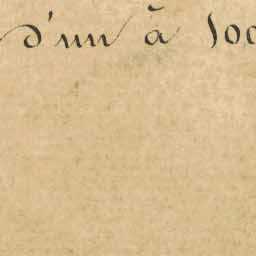 d'un à 100